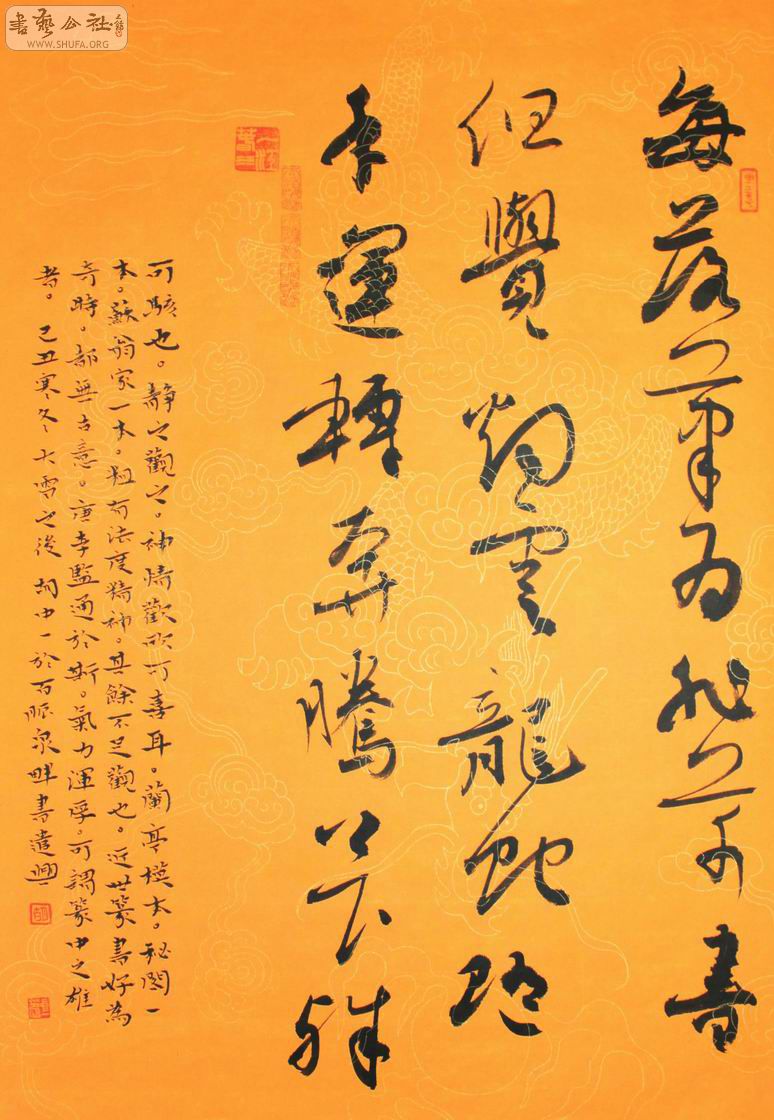 書藝公社
WWW.SHUFA.ORG
每落筆為飛草書
但覺烟雲龍蛇隨
手運轉奔騰上下殊
可駭也。靜而觀之。神情歡欣可喜耳。蘭亭模本。秘閣一
本。蘇翁家一本。粗有法度精神。其餘不足觀也。近世篆書好為
奇特。都無古意。唐李監通於斯。氣力渾厚。可謂篆中之雄
者。己丑寒冬大雪之後 胡中一於百脈泉畔書遣興